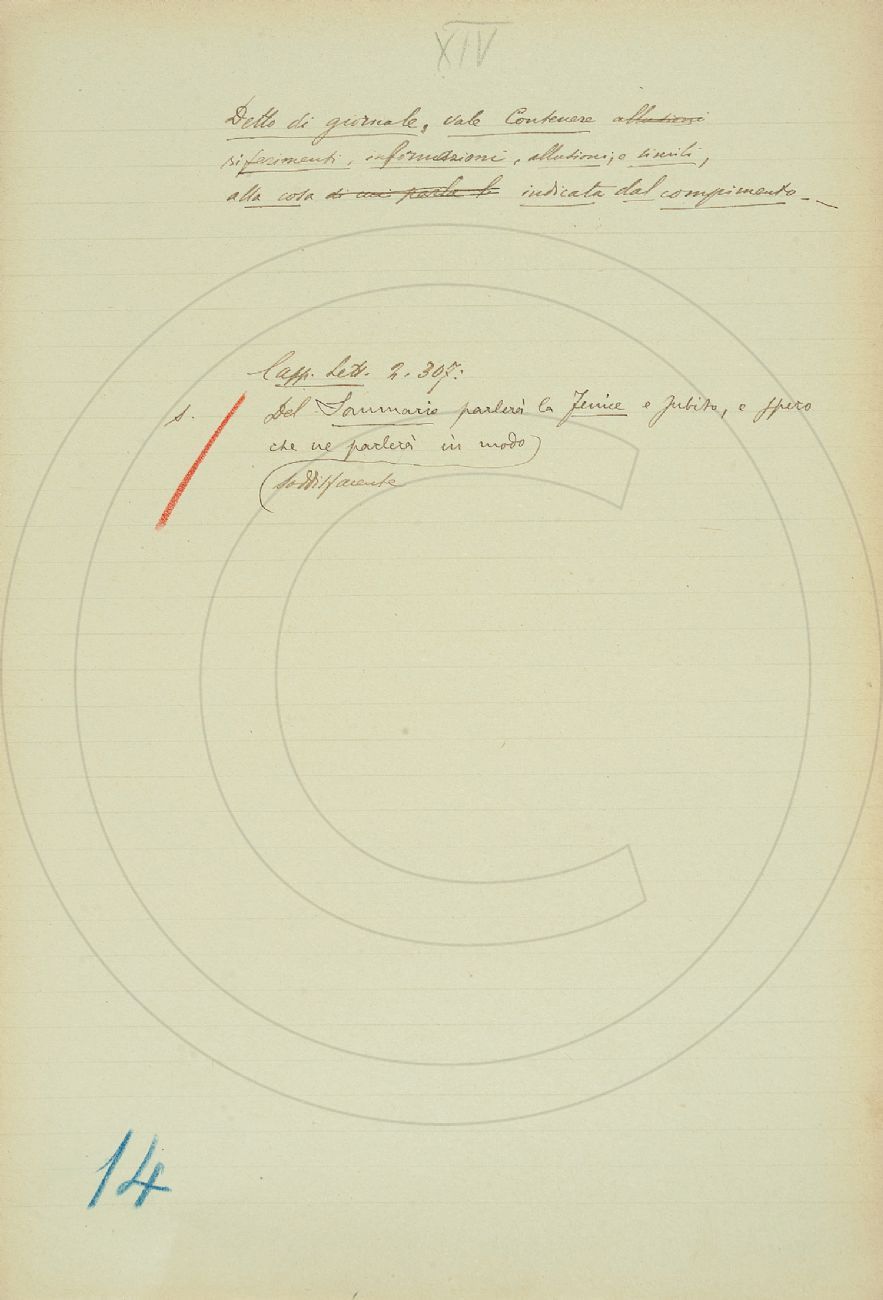 XIV
Detto di giornale, vale Contenere allusioni
riferimenti, informazioni, allusioni, e simili,
alla cosa di cui parla l indicata dal compimento. –
Capp. Lett. 2. 307:
s. Del Sommario parlerà la Fenice e subito, e spero
che ne parlerà in modo
soddisfacente
14